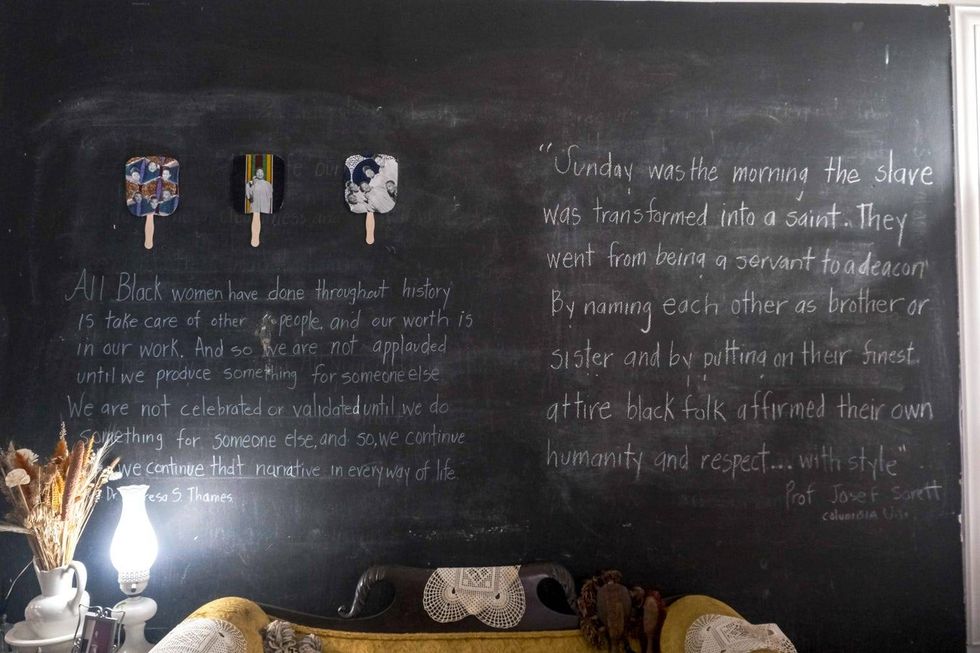 All Black women have done throughout history
is take care of other people. and our worth is
in our work. And so we are not applauded
until we produce something for someone else
We are not celebrated or validated until we do
something for someone else, and so, we continue
we continue that narrative in every way of life.
S Thames
"Sunday was the morning the slave
was transformed into a saint. They
went from being a servant to a deacon
By naming each other as brother or
sister and by putting on their finest
attire black folk affirmed their own
humanity and respect... with style"
Prof Josef Sorett
Columbia